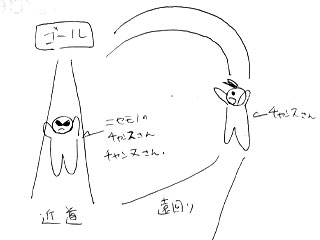 ゴール
ニセモノの
チャンスさん
チャンスさん.
チャンスさん
近道
遠回り